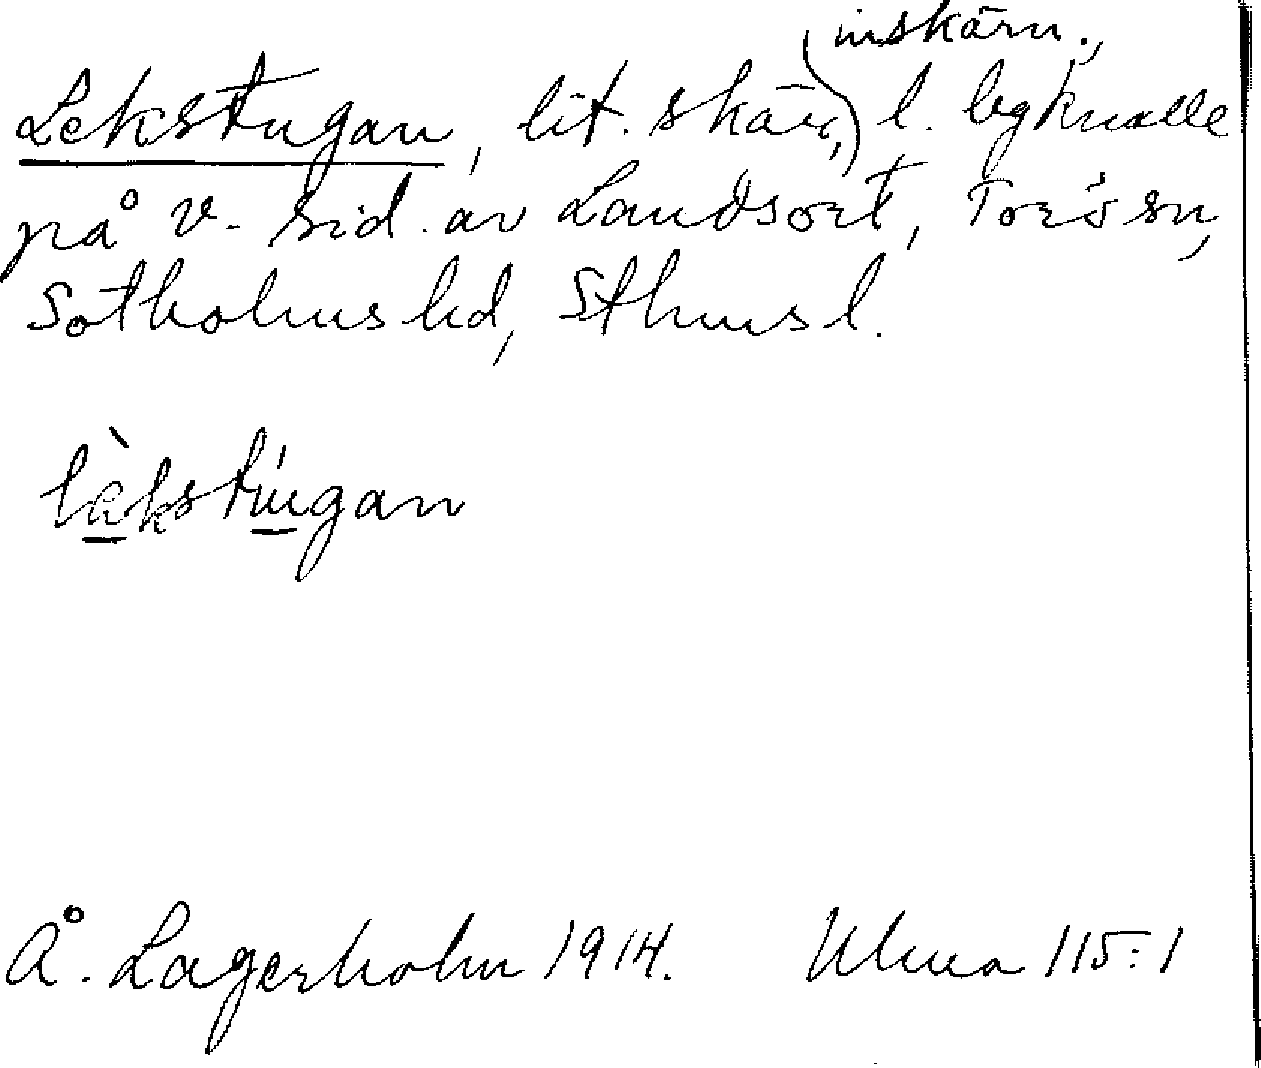 inskärn.,
Lekstugan, lit. skär, l. bgknalle
på v. sid. av Landsort, Torö sn,
Sotholms hd, Sthms l.
lèkstúgan
Å. Lagerholm 1914. Ulma 115:1